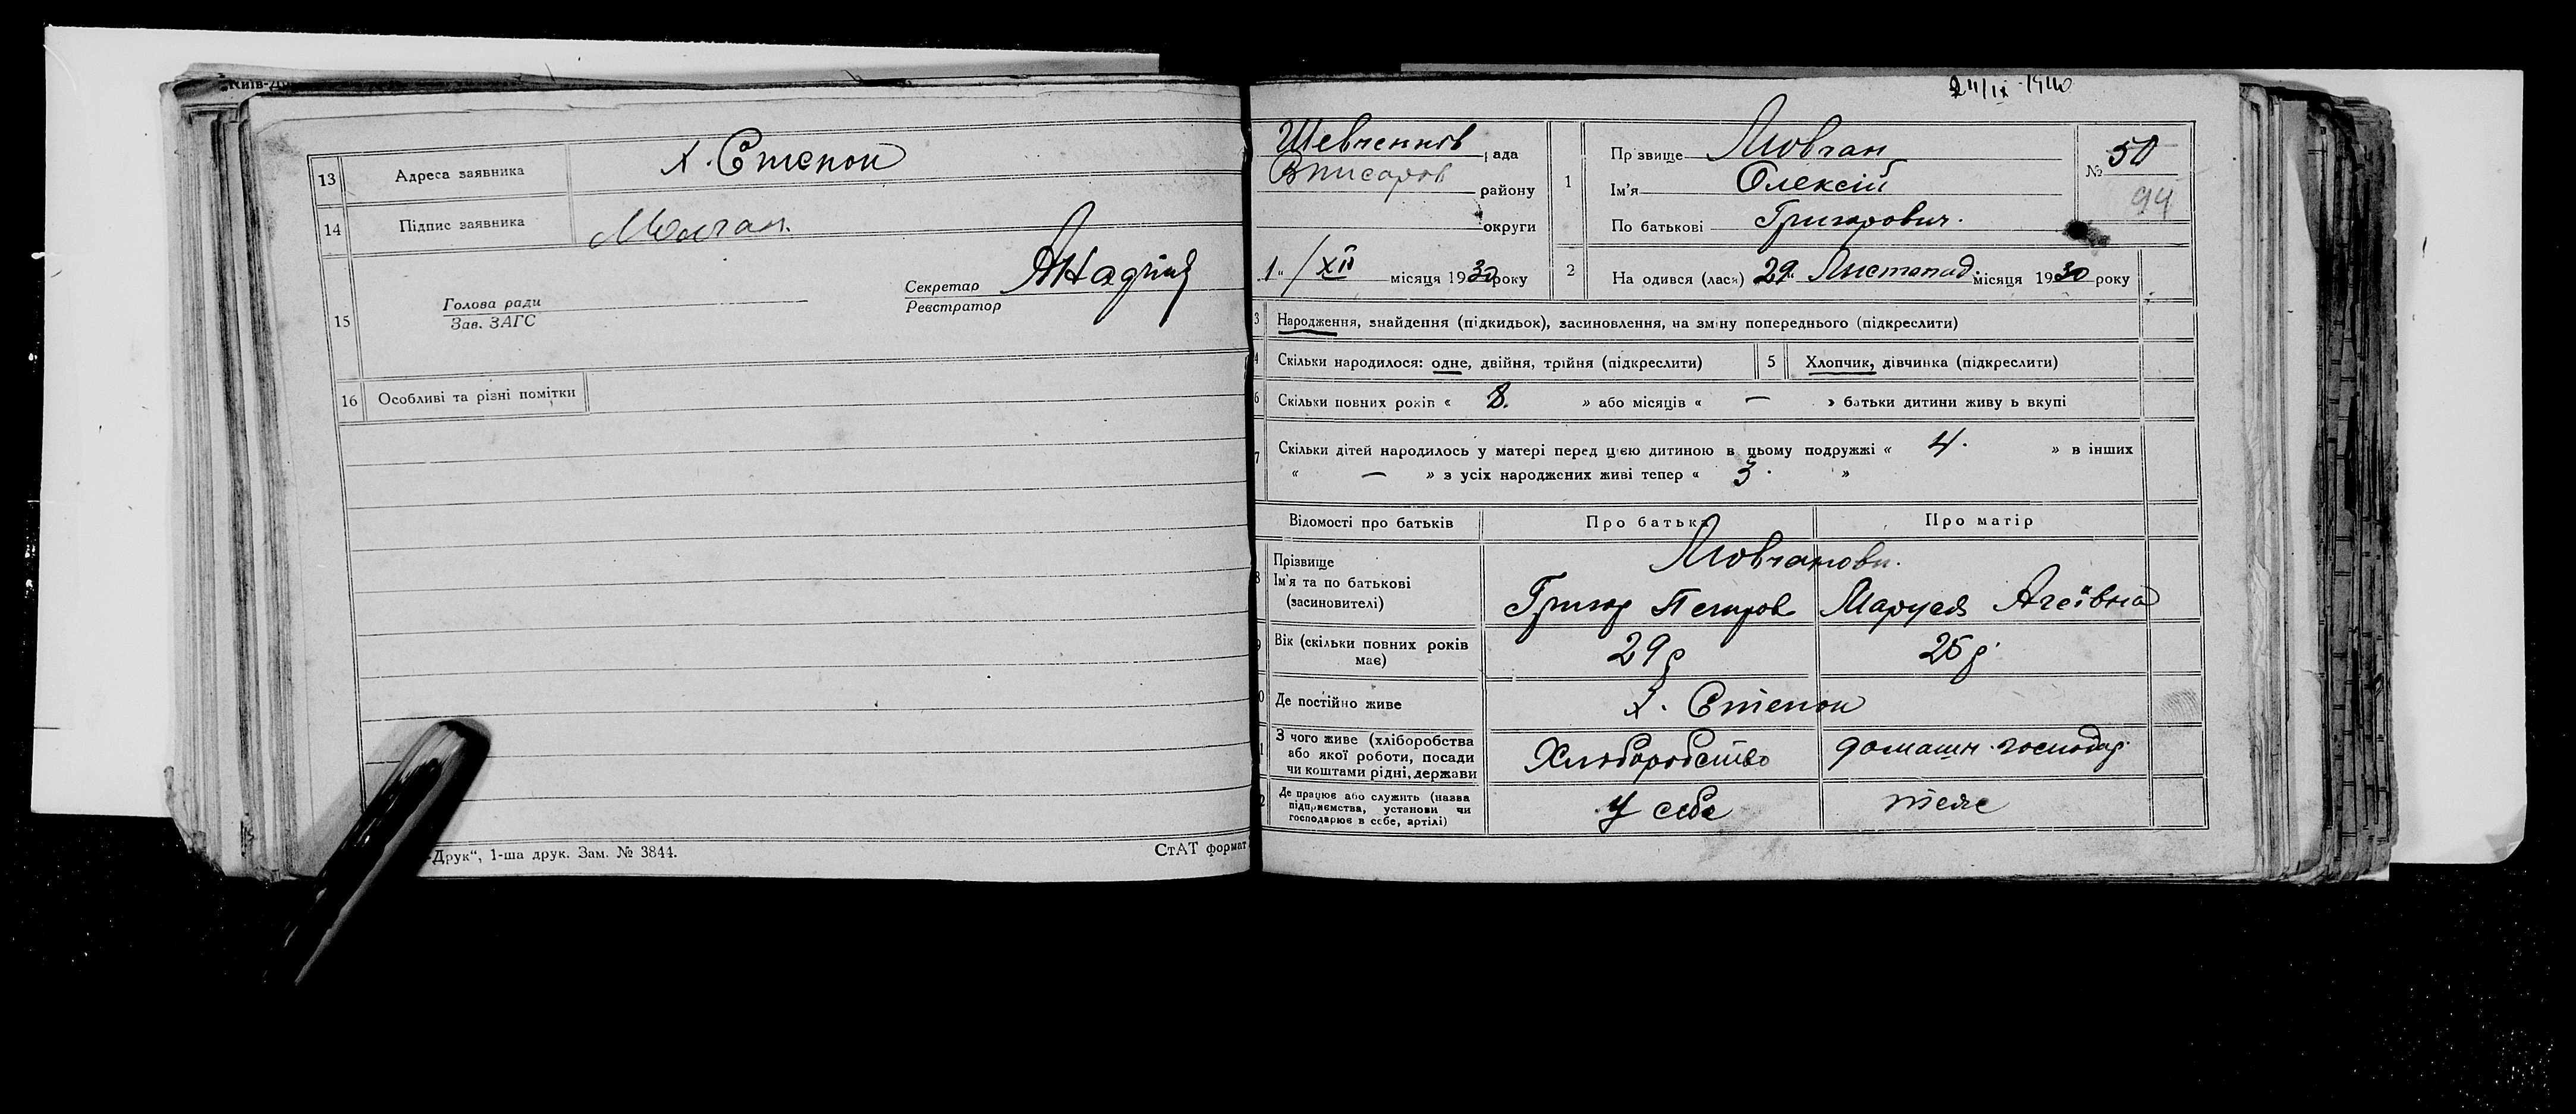 Київ-Д
13 Адреса заявника х. Степок
14 Підпис заявника Мовчан.
15 Голова ради
Зав. ЗАГС
Секретар
Реєстратор
16 Особливі та різні помітки
-Друк“, 1-ша друк. Зам. № 3844.
СтАТ формат
24/ІХ-1940
Шевченків рада
району
округи
1 „/XII місяця 1930 року
1 Прізвище Мовчан
Ім'я Олексій
По батькові Григорович.
№ 50
94
2 На одився (лася) 29 „ Листопад. місяця 1930 року
3 Народження, знайдення (підкидьок), засиновлення, на зміну попереднього (підкреслити)
4 Скільки народилося: одне, двійня, трійня (підкреслити) 5 Хлопчик, дівчинка (підкреслити)
6 Скільки повних років « 8. » або місяців « — » батьки дитини живу ь вкупі
7 Скільки дітей народилось у матері перед цією дитиною в цьому подружжі « 4. » в інших
« — » з усіх народжених живі тепер « 3. »
Відомості про батьків Про батька Про матір
8 Прізвище
Ім'я та по батькові
(засиновителі)
Мовчанови.
Григор Петров Маруся Агеївна
9 Вік (скільки повних років
має)
29 р 25 р.
0 Де постійно живе х. Степок
1 З чого живе (хліборобства
або якої роботи, посади
чи коштами рідні, держави
Хліборобство домашн. господар.
2 Де працює або служить (назва
підприємства, установи чи
господарює в себе, артілі)
У себе теж